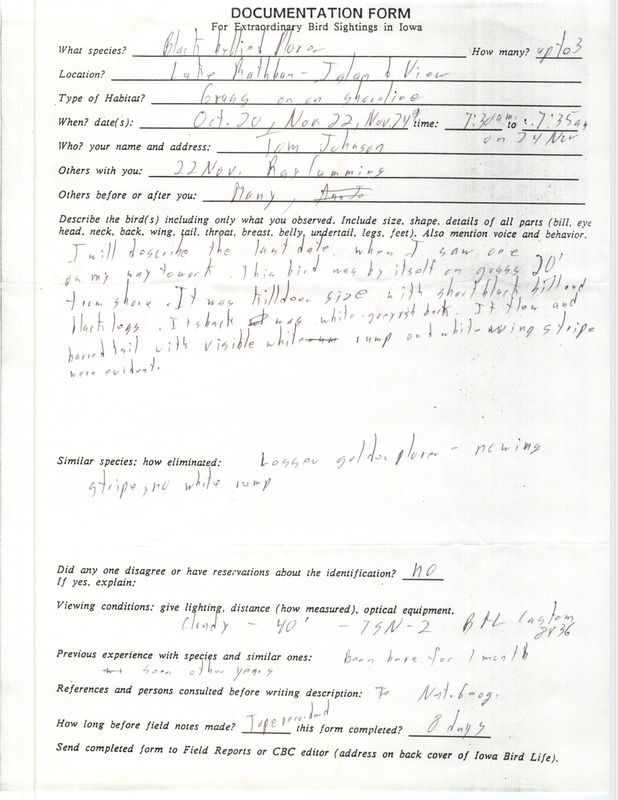 DOCUMENTATION FORM
For Extraordinary Bird Sightings in Iowa
What species? Black bellied Plover How many? up to 3
Location? Lake Rathbun - Island View
Type of Habitat? Grass on shoreline
When? date(s): Oct. 20, Nov. 22, Nov. 24 time: 7:30am to 7:35am
on 24 Nov
Who? your name and address: Tom Johnson
Others with you: 22 Nov. Ray Cummins
Others before or after you: Many,
Describe the bird(s) including only what you observed. Include size, shape, details of all parts (bill, eye
head, neck, back, wing, tail, throat, breast, belly, undertail, legs, feet). Also mention voice and behavior.
I will describe the last date when I saw one
on my way to work. This bird was by itself on grass 20'
from shore. It was killdeer size with short black bill and
black legs. Its back was white-greyish back. It flew and
barred tail with visible white rump and white wing stripe
were evident.
Similar species; how eliminated: Lesser golden plover - no wing
stripe, no white rump
Did any one disagree or have reservations about the identification? no
If yes, explain:
Viewing conditions: give lighting, distance (how measured), optical equipment.
Cloudy - 40' - TSN-2 B+L Custom
8x36
Previous experience with species and similar ones: Been here for 1 month
seen other years
References and persons consulted before writing description: Nat. Geog.
How long before field notes made? Tape recorded this form completed? 8 days
Send completed form to Field Reports or CBC editor (address on back cover of Iowa Bird Life).